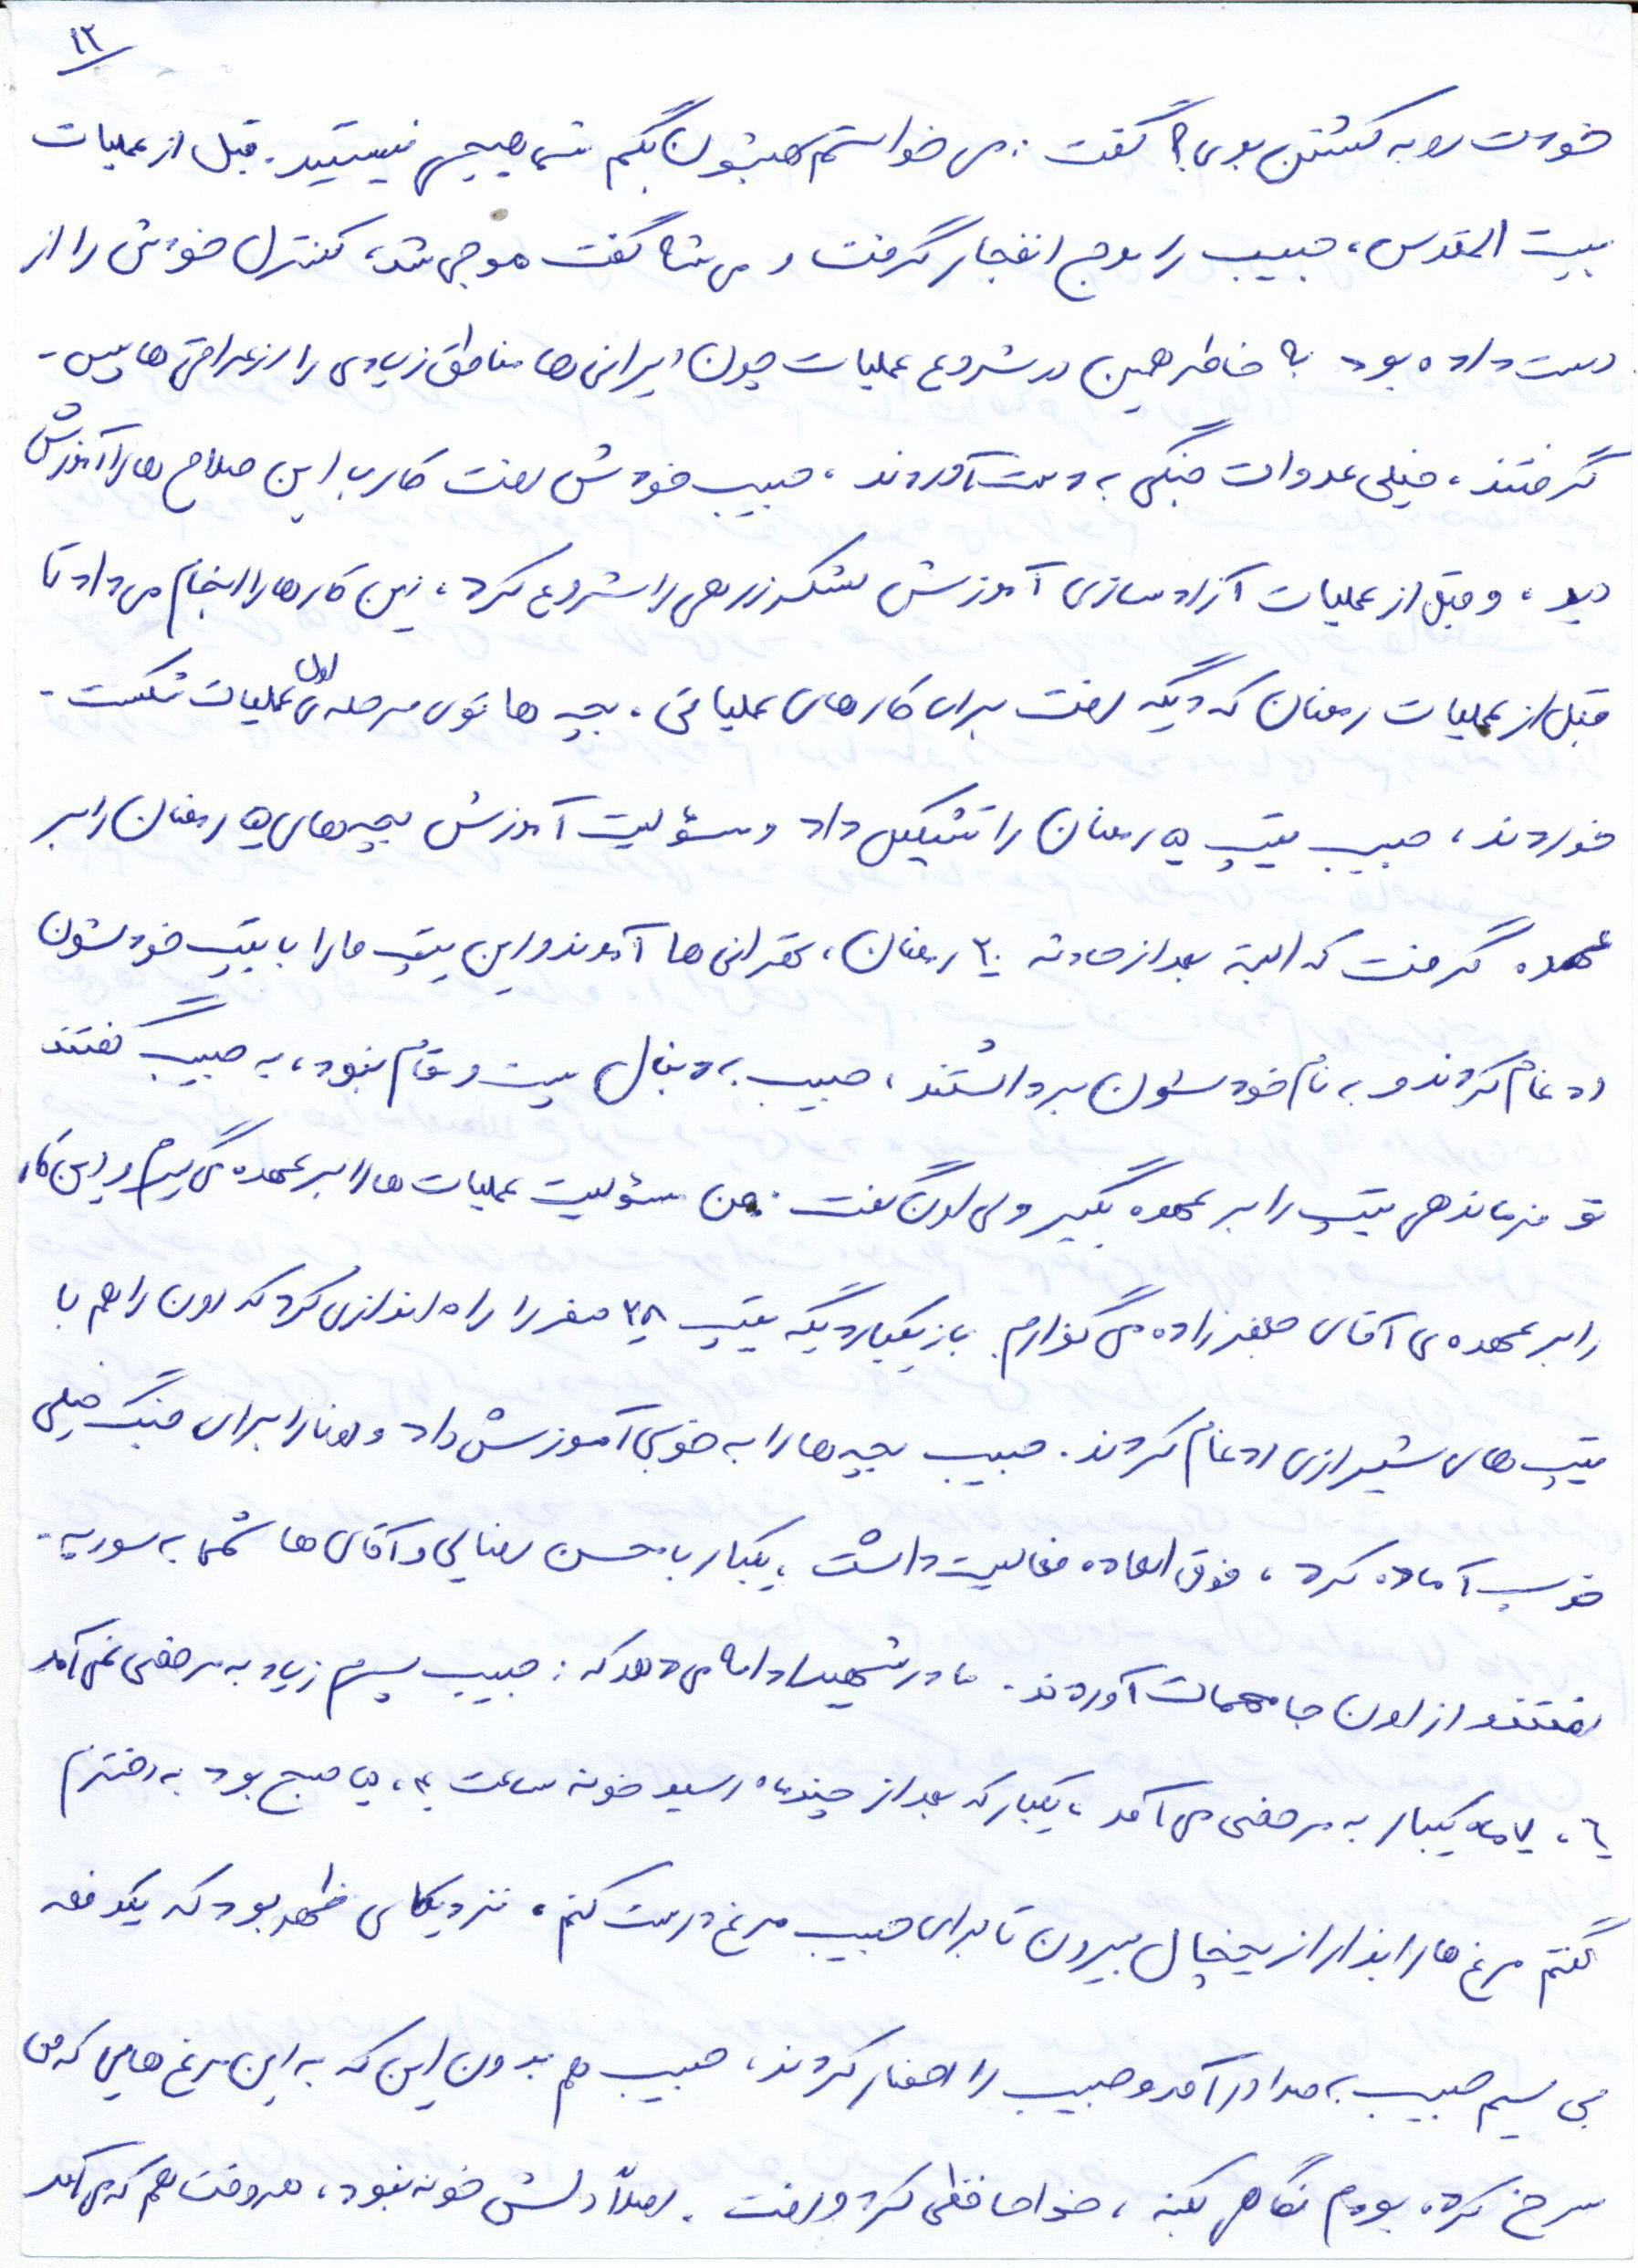 ۱۲
خودت رو به کشتن بدی؟ گفت: می خواستم بهشون بگم شما هیچی نیستید. قبل از عملیات
بیت المقدس، حبیب را موج انفجار گرفت و می شه گفت موجی شد، کنترل خودش را از
دست داده بود به خاطر همین در شروع عملیات چون ایرانی ها مناطق زیادی را از عراقی ها پس-
گرفتند، خیلی عدوات جنگی به دست آوردند، حبیب خودش رفت کار با این صلاح ها را آموزش
دید، و قبل از عملیات آزادسازی آموزش لشکر زرهی را شروع کرد، این کارها را انجام می داد تا
قبل از عملیات رمضان که دیگه رفت برای کارهای عملیاتی. بچه ها توی مرحله ی اول عملیات شکست-
خوردند، حبیب تیپ ۱۵ رمضان را تشکیل داد و مسؤلیت آموزش بچه های ۱۵ رمضان را بر
عهده گرفت که البته بعد از حادثه ۲۰ رمضان، تهرانی ها آمدند و این تیپ ما را با تیپ خودشون
ادغام کردند و به نام خودشون برداشتند، حبیب به دنبال پست و مقام نبود، به حبیب گفتند
تو فرماندهی تیپ را بر عهده بگیر ولی اون گفت: من مسؤلیت عملیات ها را بر عهده می گیرم و این کار
را بر عهده ی آقای جعفرزاده می گذارم. باز یکبار دیگه تیپ ۲۸ صفر را راه اندازی کرد که اون را هم با
تیپ های شیرازی ادغام کردند. حبیب بچه ها را به خوبی آموزش داد و اونا را برای جنگ خیلی
خوب آماده کرد، فوق العاده فعالیت داشت، یکبار با محسن رضایی و آقای ها شما به سوریه-
رفتند و از اون جا مهمات آوردند. مادر شهید ادامه می دهد که: حبیب پسرم زیاد به مرخصی نمی آمد
۶، ۷ ماه یکبار به مرخصی می آمد، یکبار که بعد از چند ماه رسید خونه ساعت ۴، ۵ صبح بود به دخترم
گفتم مرغ ها را بذار از یخچال بیرون تا برای حبیب مرغ درست کنم. نزدیکای ظهر بود که یکدفعه
بی سیم حبیب به صدا در آمد و حبیب را احضار کردند، حبیب هم بدون این که به این مرغ هایی که من
سرخ کرده بودم نگاهی بکنه، خداحافظی کرد و رفت. اصلاً دلش خونه نبود، هر وقت هم که می آمد